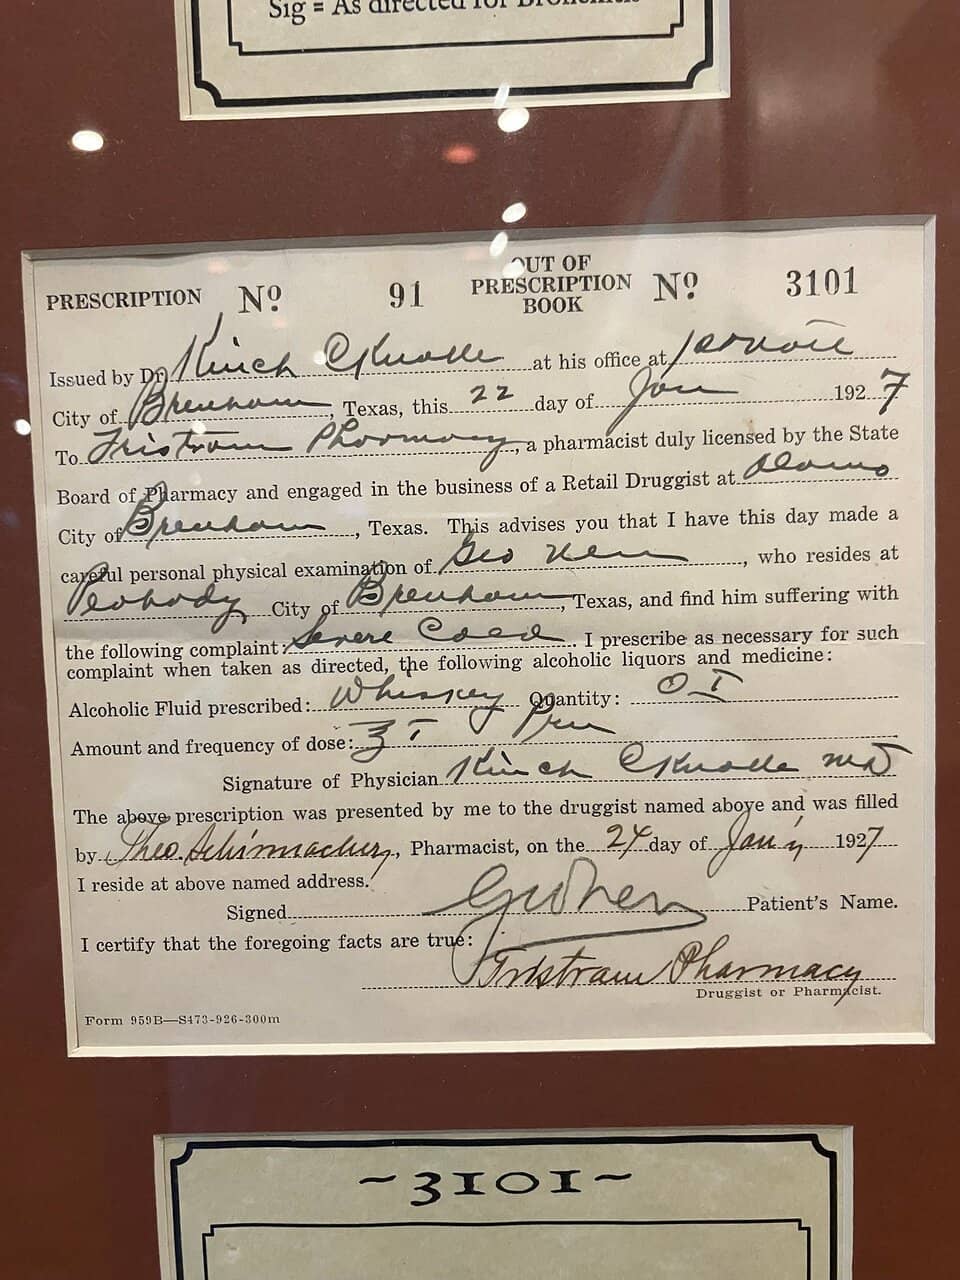 Sig = As directed for Bronchitis
PRESCRIPTION Nº 91 OUT OF PRESCRIPTION BOOK Nº 3101
Issued by Dr. Kinch C Knolle at his office at
City of Brenham, Texas, this 22 day of Jan 1927
To Tristram Pharmacy, a pharmacist duly licensed by the State
Board of Pharmacy and engaged in the business of a Retail Druggist at Alamo
City of Brenham, Texas. This advises you that I have this day made a
careful personal physical examination of Geo, who resides at
Peabody City of Brenham, Texas, and find him suffering with
the following complaint: Severe Cold. I prescribe as necessary for such
complaint when taken as directed, the following alcoholic liquors and medicine:
Alcoholic Fluid prescribed: Whiskey Quantity: O I
Amount and frequency of dose: ℥ I Prn
Signature of Physician Kinch C Knolle MD
The above prescription was presented by me to the druggist named above and was filled
by Theo. Schirmacher, Pharmacist, on the 24 day of Jan'y 1927
I reside at above named address.
Signed Patient's Name.
I certify that the foregoing facts are true:
Tristram Pharmacy
Druggist or Pharmacist.
Form 959B—S473-926-300m
~3101~